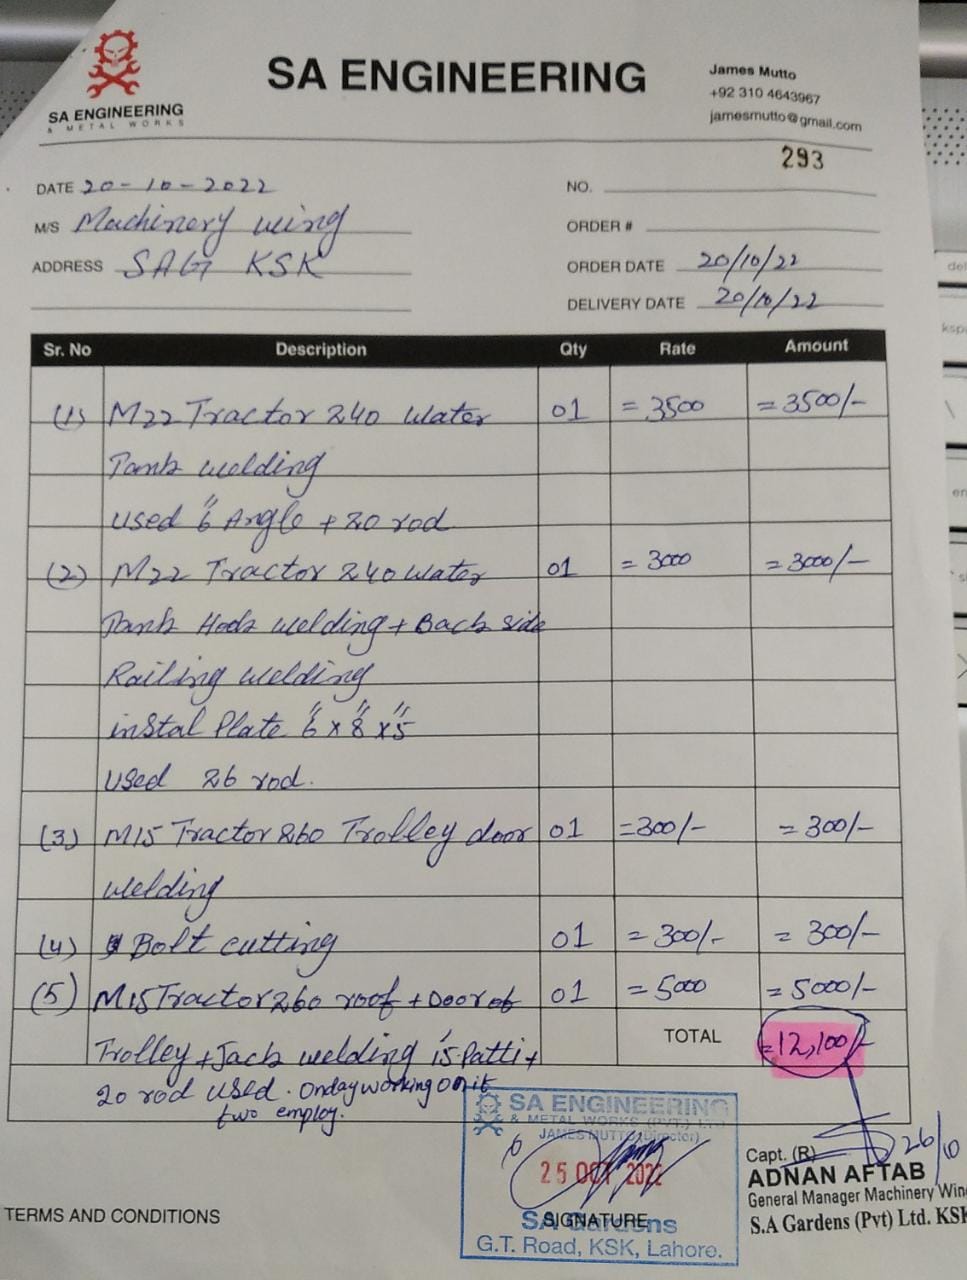 SA ENGINEERING
& METAL WORKS
SA ENGINEERING
James Mutto
+92 310 4643967
jamesmutto@gmail.com
293
DATE 20-10-2022
NO.
M/S Machinery wing
ORDER #
ADDRESS SAG KSK
ORDER DATE 20/10/22
DELIVERY DATE 20/10/22
Sr. No Description Qty Rate Amount
(1) M22 Tractor 240 Water 01 = 3500 = 3500/-
Tank welding
used 6" Angle + 20 rod
(2) M22 Tractor 240 Water 01 = 3000 = 3000/-
Tank Hook welding + Back side
Railing welding
instal Plate 6" x 8" x 5"
used 26 rod.
(3) M15 Tractor 260 Trolley door 01 =300/- = 300/-
welding
(4) Bolt cutting 01 = 300/- = 300/-
(5) M15 Tractor 260 roof + Door of 01 = 5000 = 5000/-
Trolley + Jack welding 15. Patti +
TOTAL =12,100/-
20 rod used. Onday working on it
two employ.
SA ENGINEERING
& METAL WORKS (PVT.) LTD
JAMES MUTTO (Director)
25 OCT 2022
SIGNATURE
SA Gardens
G.T. Road, KSK, Lahore.
26/10
Capt. (R)
ADNAN AFTAB
General Manager Machinery Wing
S.A Gardens (Pvt) Ltd. KSK
TERMS AND CONDITIONS